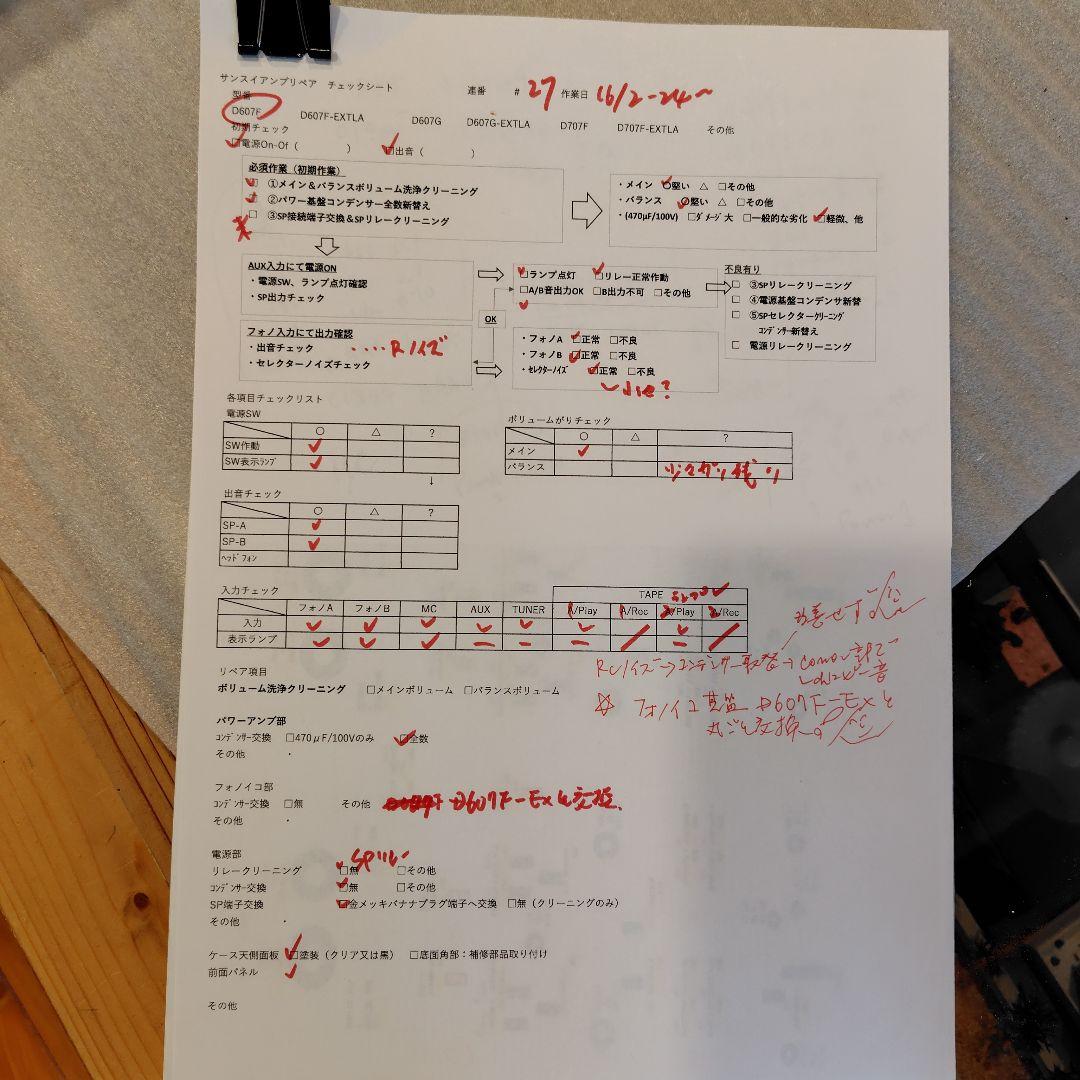 サンスイアンプリペア　チェックシート　連番　# 27　作業日　16/2-24～
型番
D607F　D607F-EXTLA　D607G　D607G-EXTLA　D707F　D707F-EXTLA　その他
初期チェック
□電源On-Of（　　　）　□出音（　　　）
必須作業（初期作業）
□　①メイン＆バランスボリューム洗浄クリーニング
□　②パワー基盤コンデンサー全数新替え
□　③SP接続端子交換＆SPリレークリーニング
・メイン　○堅い　△　□その他
・バランス　○堅い　△　□その他
・(470μF/100V)　□ダメージ大　□一般的な劣化　□軽微、他
AUX入力にて電源ON
・電源SW、ランプ点灯確認
・SP出力チェック
□ランプ点灯　□リレー正常作動
□A/B音出力OK　□B出力不可　□その他
不良有り
□　③SPリレークリーニング
□　④電源基盤コンデンサ新替
□　⑤SPセレクタークリーニング
コンデンサー新替え
□　電源リレークリーニング
OK
フォノ入力にて出力確認
・出音チェック　....Rノイズ
・セレクターノイズチェック
・フォノA　□正常　□不良
・フォノB　□正常　□不良
・セレクターノイズ　□正常　□不良
各項目チェックリスト
電源SW
○　△　?
SW作動
SW表示ランプ
↓
ボリュームがりチェック
○　△　?
メイン
バランス　少々ガリ残り
出音チェック
○　△　?
SP-A
SP-B
ヘッドフォン
入力チェック
TAPE
フォノA　フォノB　MC　AUX　TUNER　1/Play　1/Rec　2/Play　2/Rec
入力
表示ランプ
改善せず
Rノイズ→コンデンサー取替→
☆　フォノイコ基盤　D607F-EXと
丸ごと交換。
リペア項目
ボリューム洗浄クリーニング　□メインボリューム　□バランスボリューム
パワーアンプ部
コンデンサー交換　□470μF/100Vのみ　□全数
その他　・
フォノイコ部
コンデンサー交換　□無　その他　D607F-Exと交換.
その他　・
電源部
リレークリーニング　□無　SPリレー　□その他
コンデンサー交換　□無　□その他
SP端子交換　□金メッキバナナプラグ端子へ交換　□無（クリーニングのみ）
その他　・
ケース天側面板　□塗装（クリア又は黒）　□底面角部：補修部品取り付け
前面パネル
その他